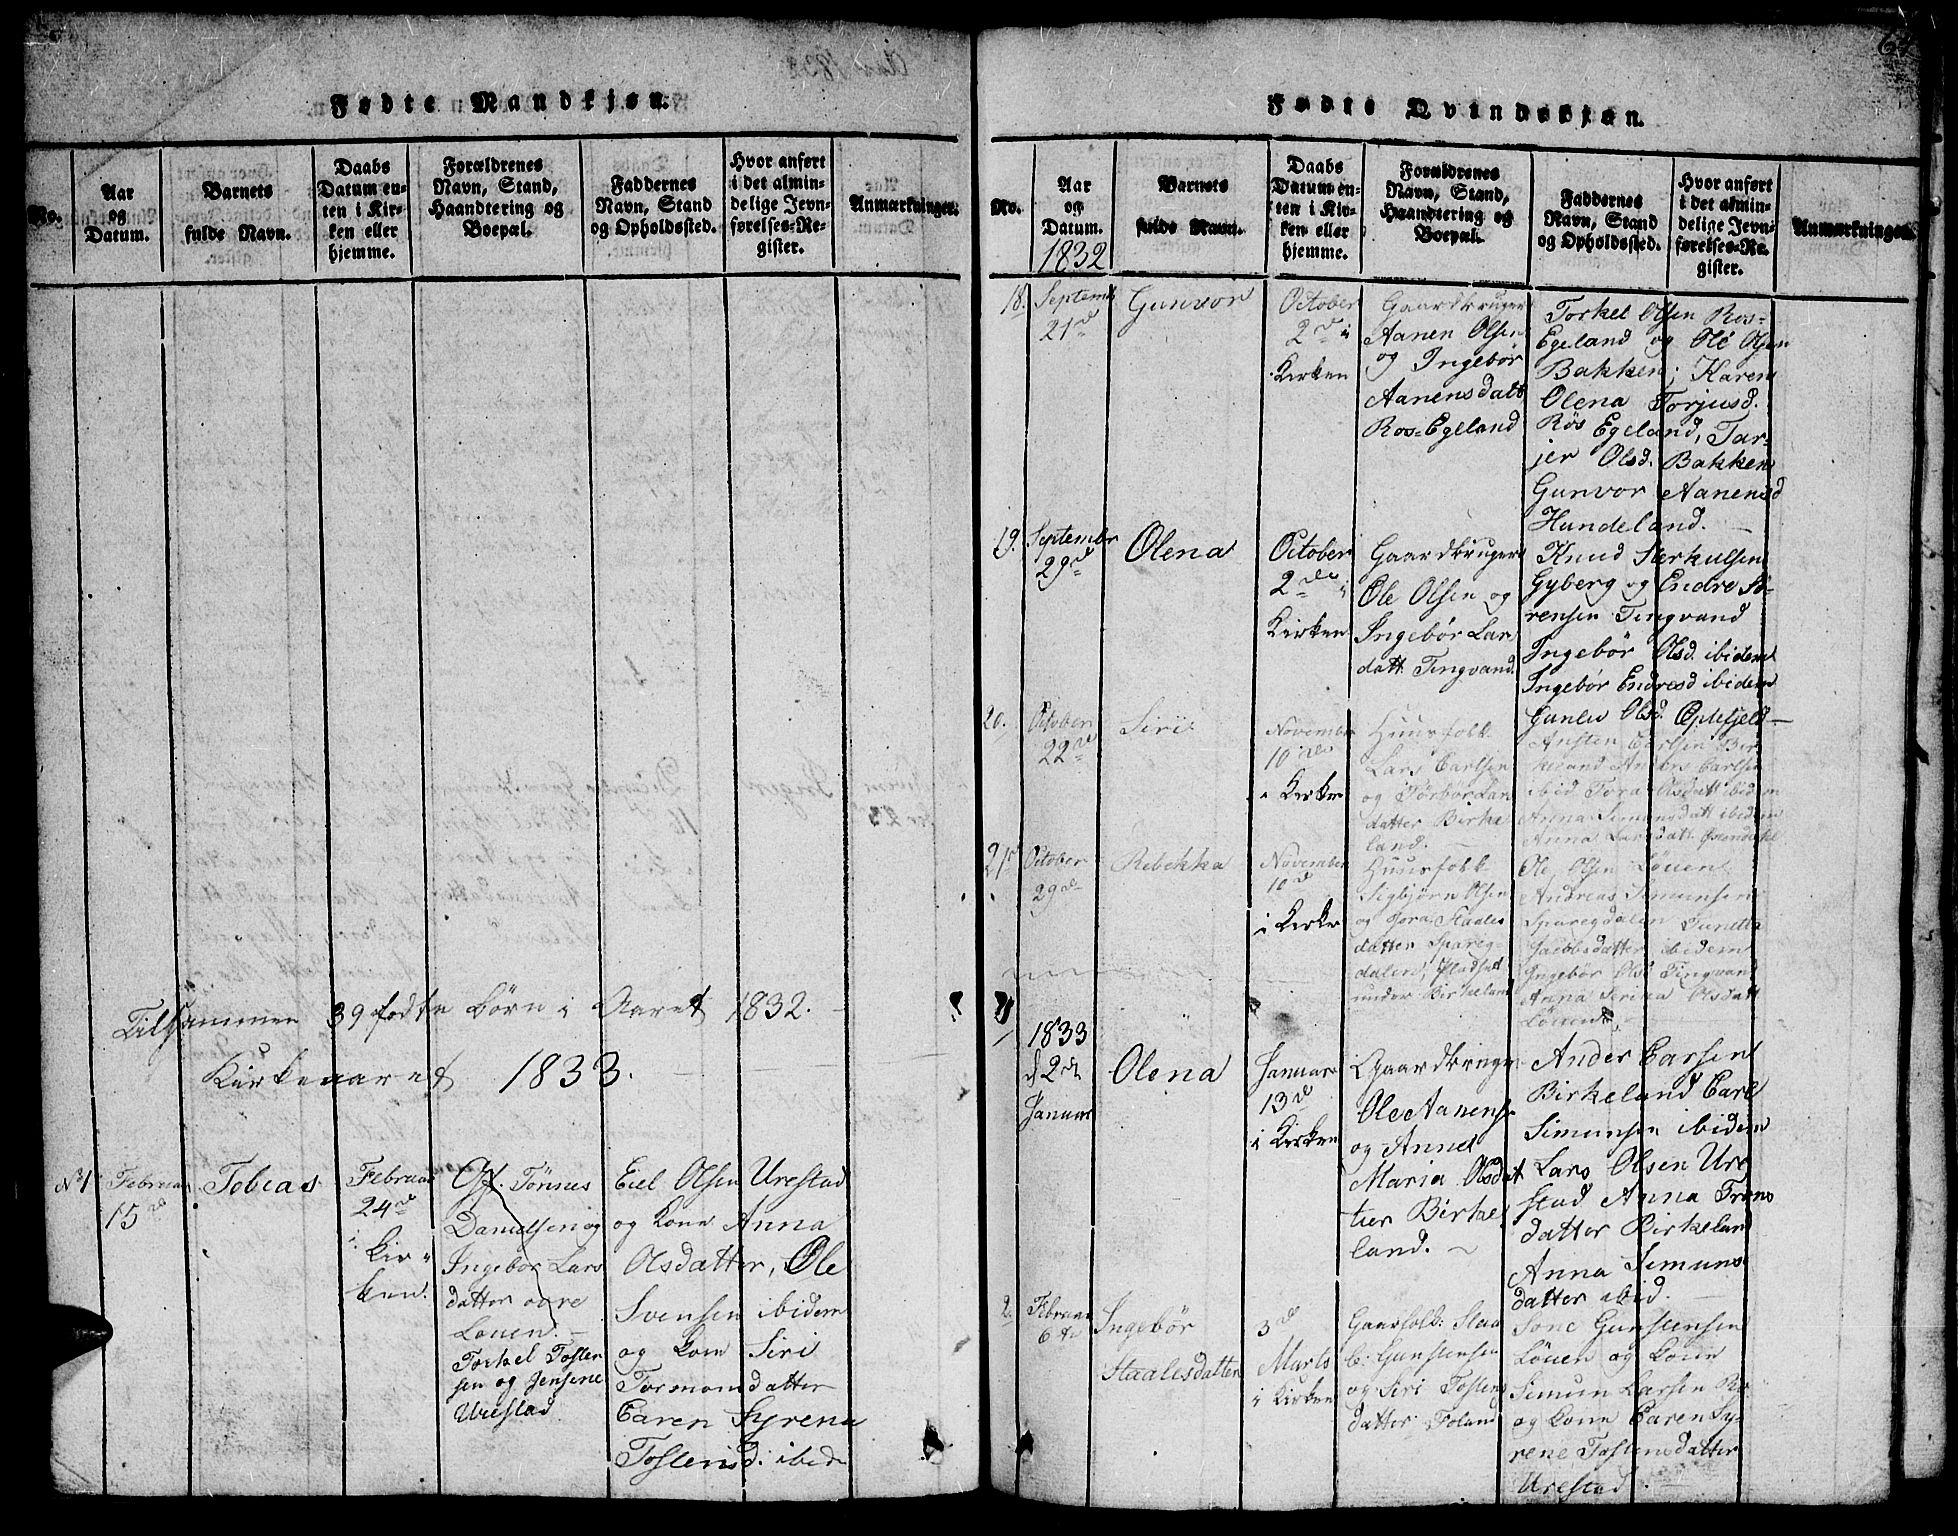 Fødte Mandkjøn.
No.
Aar
og
Datum.
Barnets
fulde Navn.
Daabs
Datum en-
ten i Kir-
ken eller
hjemme.
Forældrenes
Navn, Stand,
Haandtering og
Boepæl.
Faddernes
Navn, Stand
og Opholdssted.
Hvor anført
i det almin-
delige Jevn-
førelses-Re-
gister.
Anmærkninger.
Tilsammen 39 fødte Børn i Aaret 1832.
Kirkeaaret 1833.
No 1
Februar
15de
Tobias
Februar
24de
i
Kir-
ken.
Gf. Tønnes
Danielsen og
Ingebor Lars
datter øvre
Louen.
Torkel Tosten
sen og Jensene
Urestad
Eiel Olsen Urestad
og Kone Anna
Olsdatter, Ole
Svensen ibidem
og Kone Siri
Tormonsdatter
Caren Syrena
Tostensd. ibid
64
Fødte Qvindekjøn.
No.
Aar
og
Datum.
1832
Barnets
fulde Navn.
Daabs
Datum en-
ten i Kir-
ken eller
hjemme.
Forældrenes
Navn, Stand,
Haandtering og
Boepæl.
Faddernes
Navn, Stand
og Opholdssted.
Hvor anført
i det almin-
delige Jevn-
førelses-Re-
gister.
Anmærkninger.
18.
Septemb
21de
Gunvor
October
2de i
Kirken
Gaardbruger
Aanen Olsen
og Ingebør
Aanensdatt
Ros-Egeland
Torkel Olsen Ros-
Egeland og Ole Olsen
Bakken; Karen
Olena Torjusd.
Røs Egeland, Tar-
jer Olsd. Bakken
Gunvor Aanensd
Hundeland.
19.
Septembr
29de
Olena
October
2de i
Kirken
Gaardbruger
Ole Olsen og
Ingebør Lar
datt. Tingvand
Knud Sterkulsen
Gyberg og Endre Sø-
rensen Tingvand
Ingebør Olsd. ibidem
Ingebør Endresd ibidem
Gunlev Olsd. Eptefjeld
20.
October
22de
Siri
November
10de
i Kirken
Huusfolk
Lars Carlsen
og Torbor Lar
datter Birke
land.
Ansten Carlsen Bir
keland Anders Carlsen
ibid Tora Olsdatt ibidem
Anna Simonsdatt ibidem
Anna Larsdatt
21de
October
29de
Rebekka
November
10de
i Kirken
Huusfolk
Sigbjørn Olsen
og Tora Staales
datter Spareg-
dalen, Pladsen
under Birkeland
Ole Olsen Louen
Andreas Simunsen
Sparegdalen Tunetta
Jacobsdatter ibidem
Ingebør Olsd Tingvand
Anna Serina Olsdatt
Louen
1
1833
d 2de
Januar
Olena
Januar
13de
i Kirken
Gaardbruger
Ole Aanens
og Anne
Maria Olsdat
ter Birke
land.
Ander Carsen
Birkeland Carl
Simunsen ibidem
Lars Olsen Ure
stad Anna Trons
datter Birkeland
Anna Simuns
datter ibid.
2.
Februar
6te
Ingebör
Staalesdatter
3de
Marts
i Kirken
Gaarfolk: Staa
le Gunstensen
og Siri Tostens
datter Foland
Tone Gunstensen
Louen og Kone
Simun Larsen Ro
og Kone Caren Sy-
rene Tostensdatter
Urestad